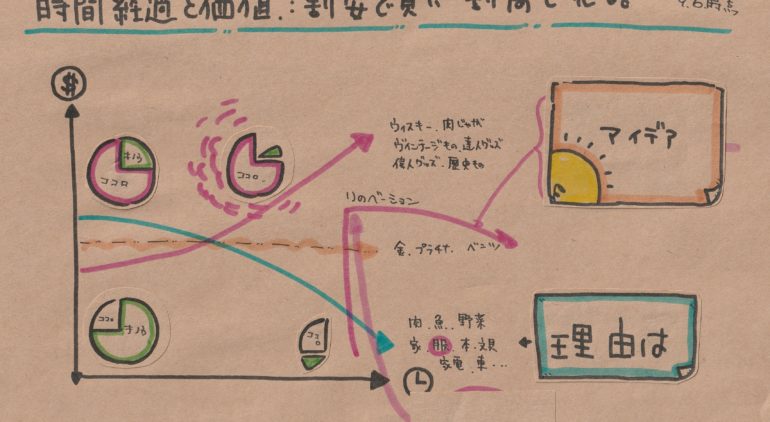 時間経過と価値.:割安で買い 割高で売る。
$
キノウ
ココロ
ココロ.
ウィスキー. 肉じゃが
ヴィンテージもの. 達人グッズ
偉人グッズ・歴史もの
アイデア
リのベーション
金. プラチナ. ベンツ
ココロ
キノウ
ココロ
肉. 魚. 野菜
家. 服. 本.文具
家電. 車...
理由は